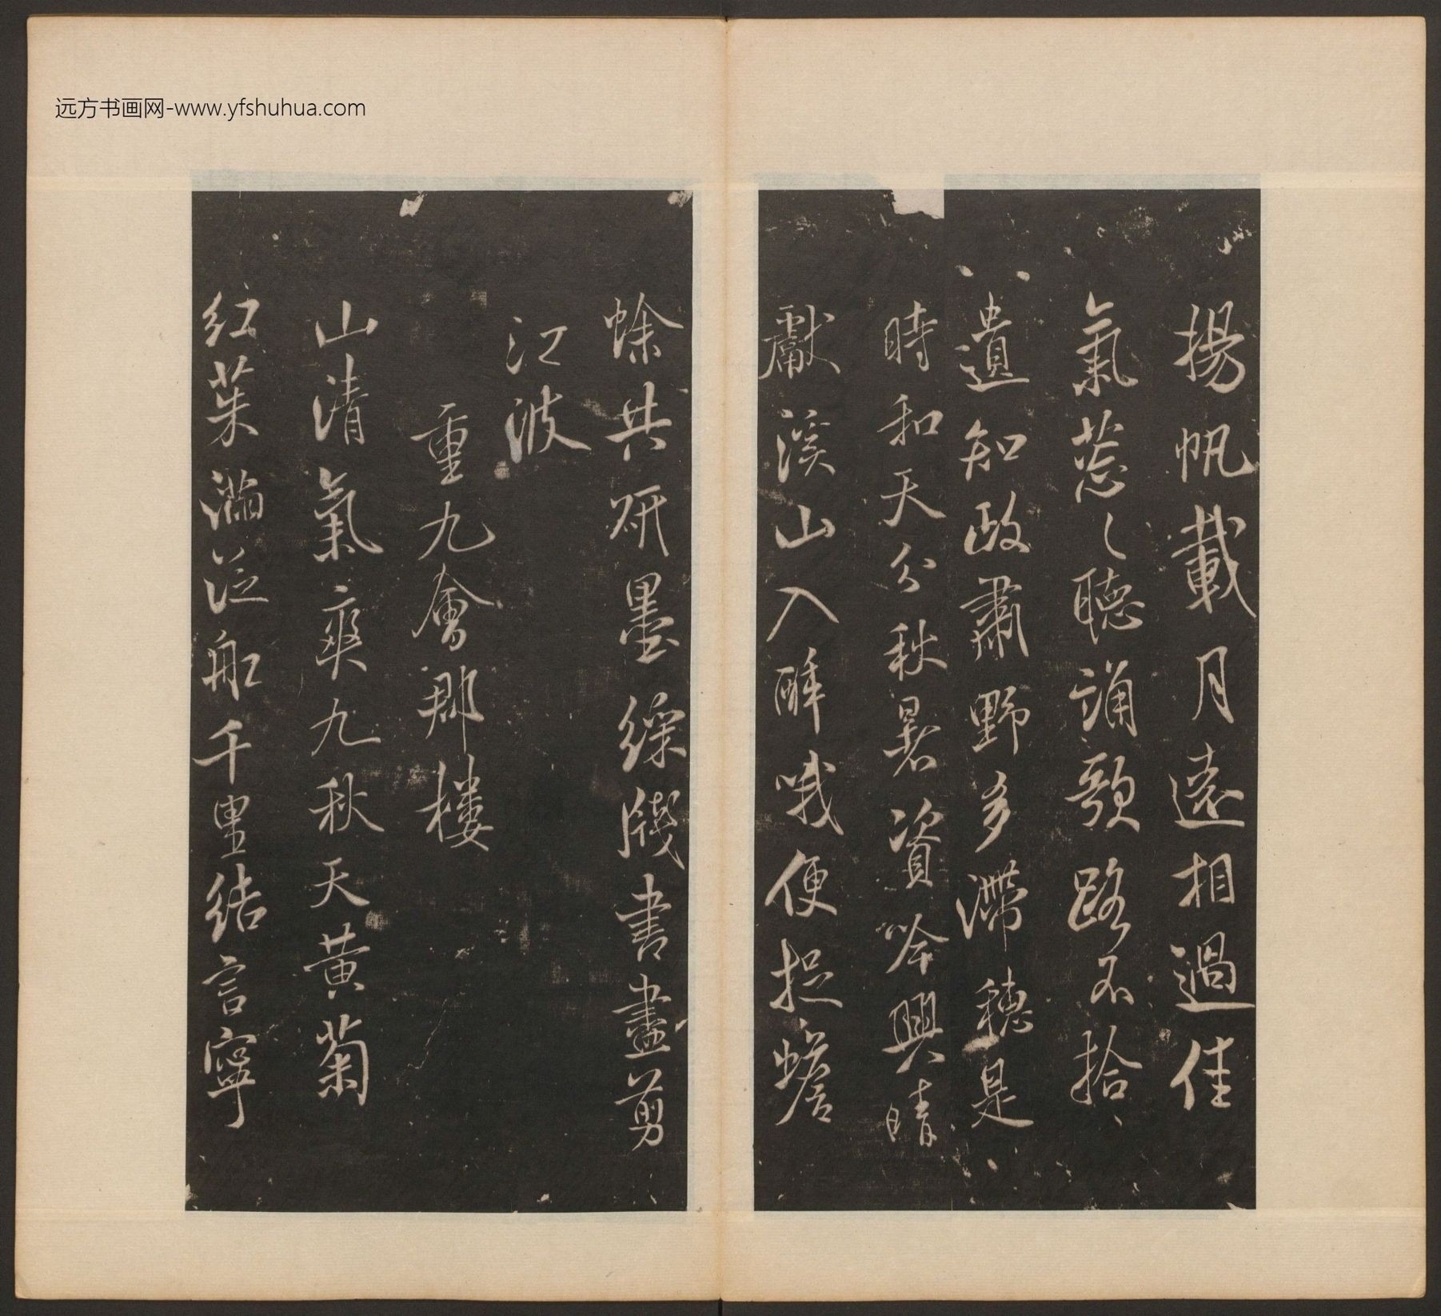 远方书画网-www.yfshuhua.com
揚帆載月遠相過佳
氣葱〻聽誦歌路不拾
遺知政肅野多滯穗是
時和天分秋暑資吟興晴
獻溪山入醉哦便捉蟾
蜍共研墨綵牋書盡剪
江波
重九會郡樓
山清氣爽九秋天黄菊
紅茱滿泛船千里結言寧